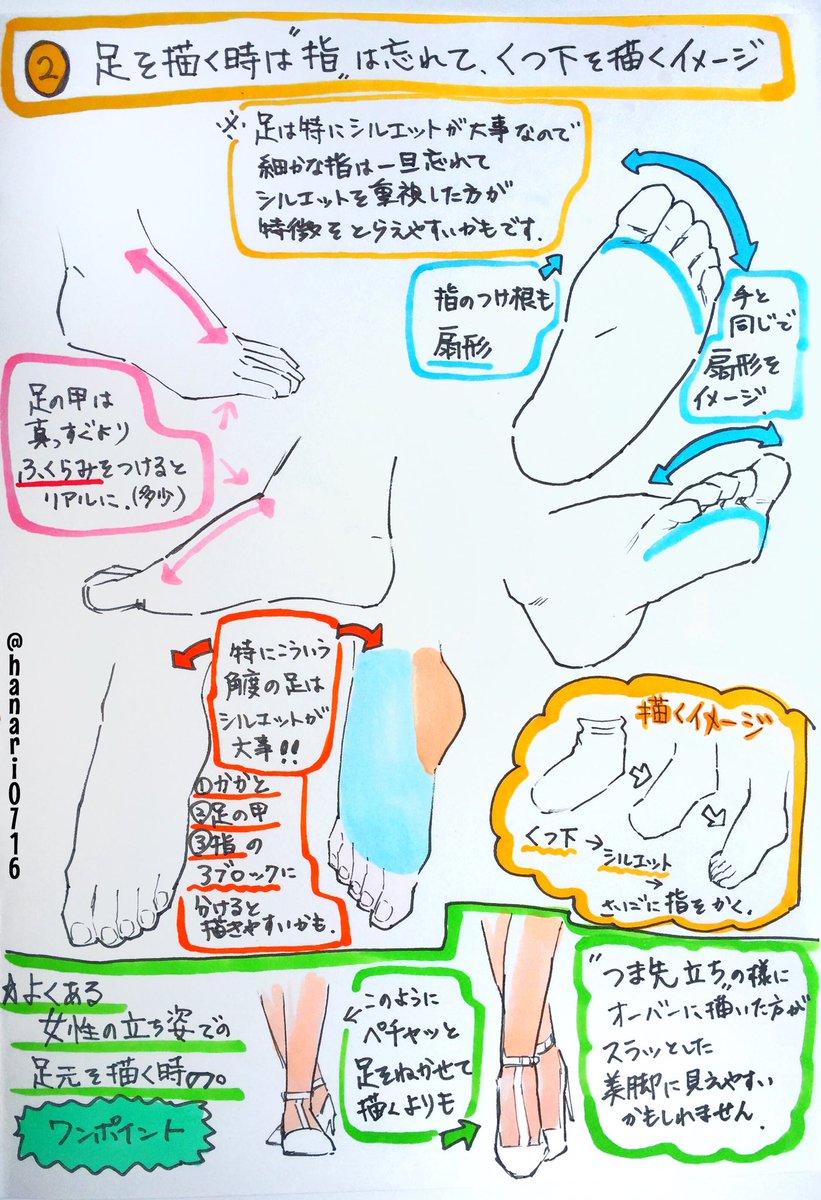 ② 足を描く時は"指"は忘れて、くつ下を描くイメージ
※足は特にシルエットが大事なので
細かな指は一旦忘れて
シルエットを重視した方が
特徴をとらえやすいかもです.
指のつけ根も
扇形
手と
同じで
扇形を
イメージ.
足の甲は
真っすぐより
ふくらみをつけると
リアルに.(多少)
特にこういう
角度の足は
シルエットが
大事!!
①かかと
②足の甲
③指の
3ブロックに
分けると
描きやすいかも.
描くイメージ
くつ下→
シルエット
→
さいごに指をかく.
@hanari0716
よくある
女性の立ち姿での
足元を描く時の。
ワンポイント
このように
ペチャッと
足をねかせて
描くよりも
"つま先立ち"の様に
オーバーに描いた方が
スラッとした
美脚に見えやすい
かもしれません.